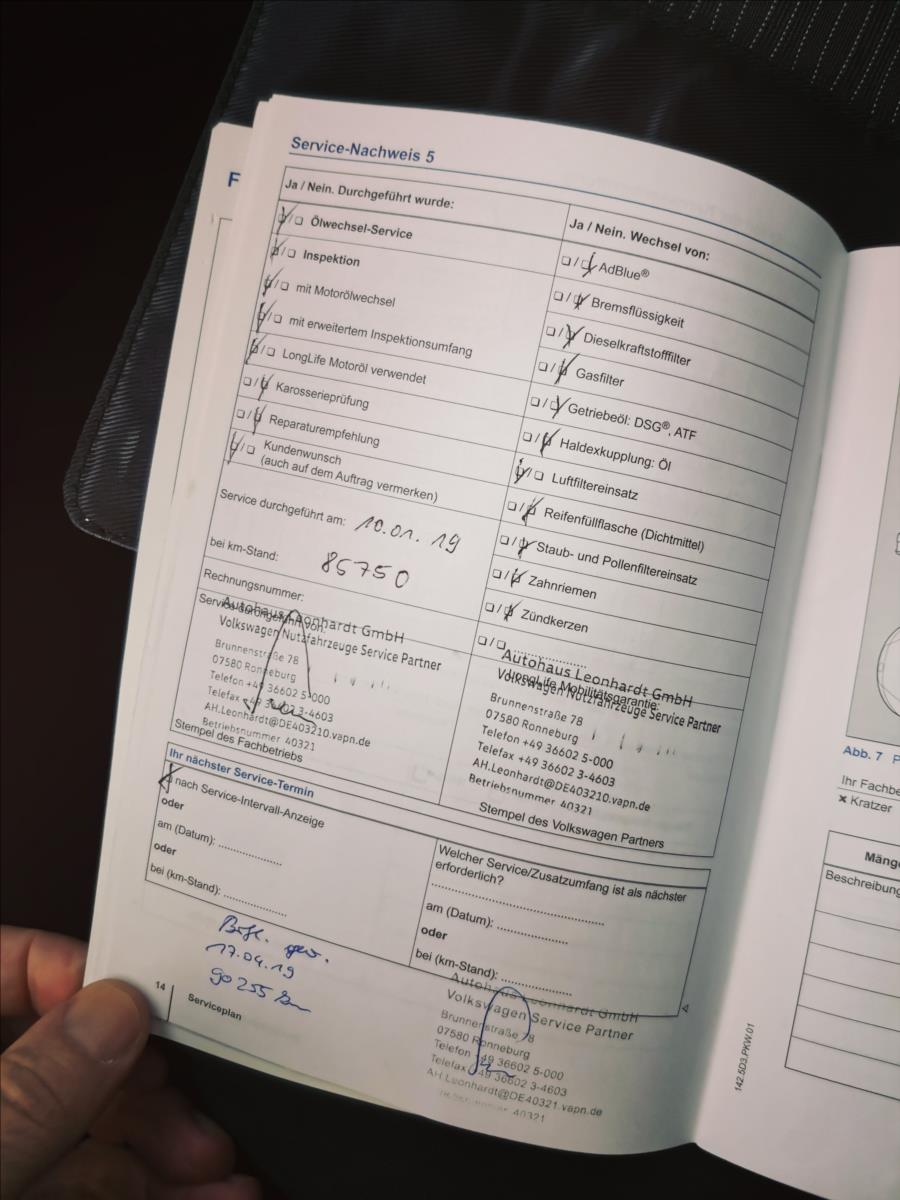 Service-Nachweis 5
F
Ja / Nein. Durchgeführt wurde:
❏/❏ Ölwechsel-Service
❏/❏ Inspektion
❏/❏ mit Motorölwechsel
❏/❏ mit erweitertem Inspektionsumfang
❏/❏ LongLife Motoröl verwendet
❏/❏ Karosserieprüfung
❏/❏ Reparaturempfehlung
❏/❏ Kundenwunsch
(auch auf dem Auftrag vermerken)
Service durchgeführt am: 10.01.19
bei km-Stand: 85750
Rechnungsnummer:
Service durchgeführt von:
Autohaus Leonhardt GmbH
Volkswagen Nutzfahrzeuge Service Partner
Brunnenstraße 78
07580 Ronneburg
Telefon +49 36602 5-000
Telefax +49 36602 3-4603
AH.Leonhardt@DE403210.vapn.de
Betriebsnummer 40321
Stempel des Fachbetriebs
Ja / Nein. Wechsel von:
❏/❏ AdBlue®
❏/❏ Bremsflüssigkeit
❏/❏ Dieselkraftstofffilter
❏/❏ Gasfilter
❏/❏ Getriebeöl: DSG®, ATF
❏/❏ Haldexkupplung: Öl
❏/❏ Luftfiltereinsatz
❏/❏ Reifenfüllflasche (Dichtmittel)
❏/❏ Staub- und Pollenfiltereinsatz
❏/❏ Zahnriemen
❏/❏ Zündkerzen
❏/❏ ....................
LongLife Mobilitätsgarantie:
Autohaus Leonhardt GmbH
Volkswagen Nutzfahrzeuge Service Partner
Brunnenstraße 78
07580 Ronneburg
Telefon +49 36602 5-000
Telefax +49 36602 3-4603
AH.Leonhardt@DE403210.vapn.de
Betriebsnummer 40321
Stempel des Volkswagen Partners
Ihr nächster Service-Termin
❏ nach Service-Intervall-Anzeige
oder
am (Datum): ................
oder
bei (km-Stand): ................
Welcher Service/Zusatzumfang ist als nächster
erforderlich?
........................................
am (Datum): ................
oder
bei (km-Stand): ................
17.04.19
90255 km
Autohaus Leonhardt GmbH
Volkswagen Service Partner
Brunnenstraße 78
07580 Ronneburg
Telefon +49 36602 5-000
Telefax +49 36602 3-4603
AH.Leonhardt@DE40321.vapn.de
40321
14
Serviceplan
142.5D3.PKW.01
Abb. 7 P
Ihr Fachbe
× Kratzer
Mänge
Beschreibung